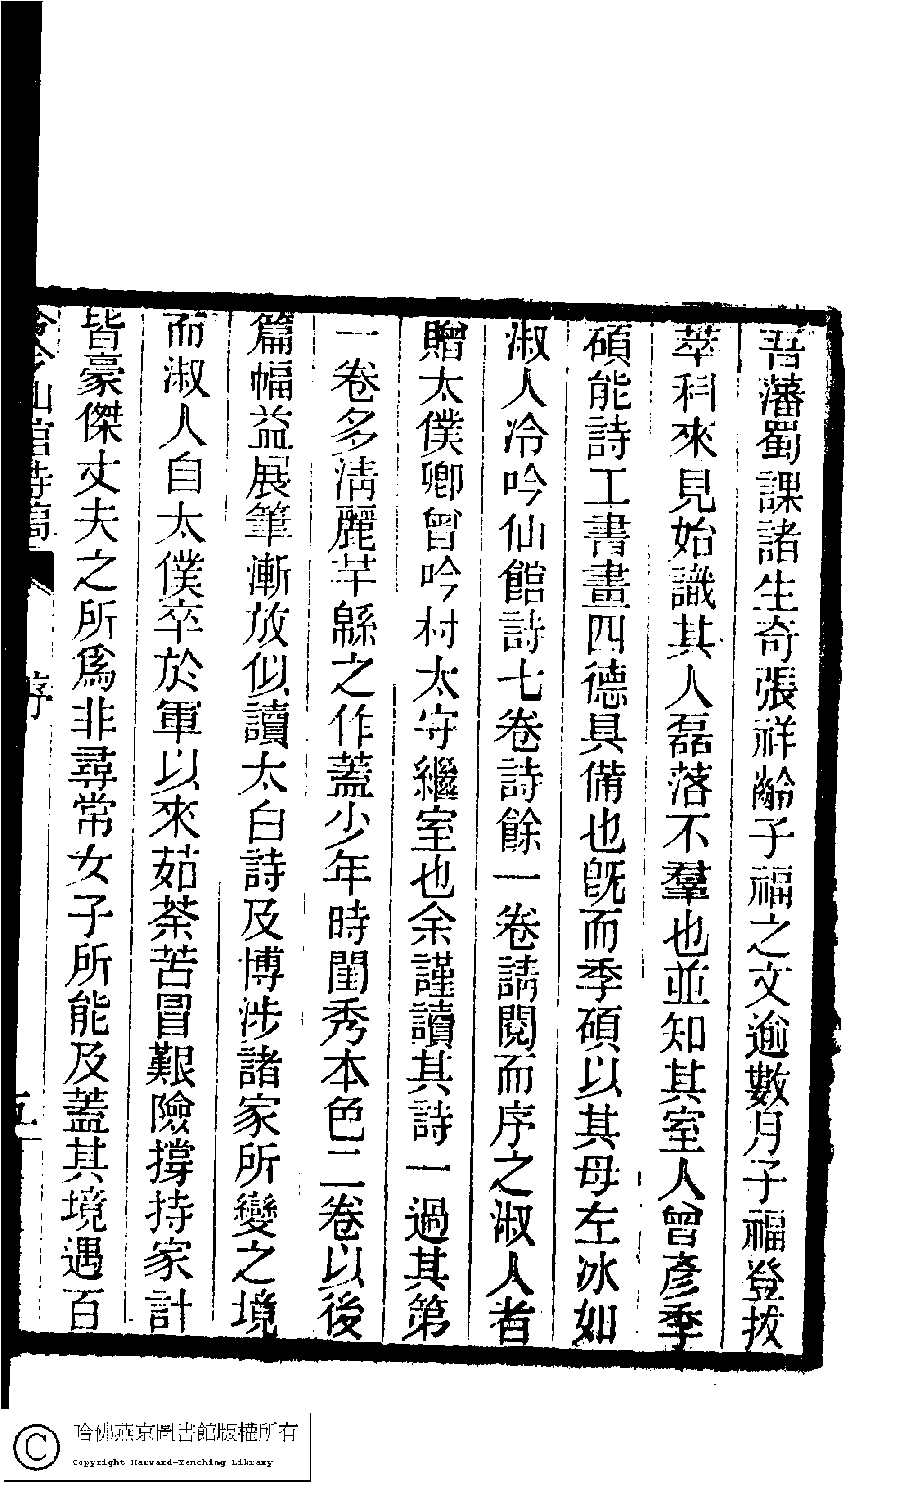 吾藩蜀課諸生奇張祥齡子福之文逾數月子福登拔
萃科來見始識其人磊落不羣也並知其室人曾彥季
碩能詩工書畫四德具備也旣而季碩以其母左冰如
淑人冷吟仙館詩七卷詩餘一卷請閱而序之淑人者
贈太僕卿曾吟村太守繼室也余謹讀其詩一過其第
一卷多淸麗芊緜之作蓋少年時閨秀本色二卷以後
篇幅益展筆漸放似讀太白詩及博涉諸家所變之境
而淑人自太僕卒於軍以來茹荼苦冒艱險撐持家計
皆豪傑丈夫之所爲非尋常女子所能及蓋其境遇百
冷吟仙館詩稿
序
五
哈佛燕京圖書館版權所有
Copyright Harvard-Yenching Library